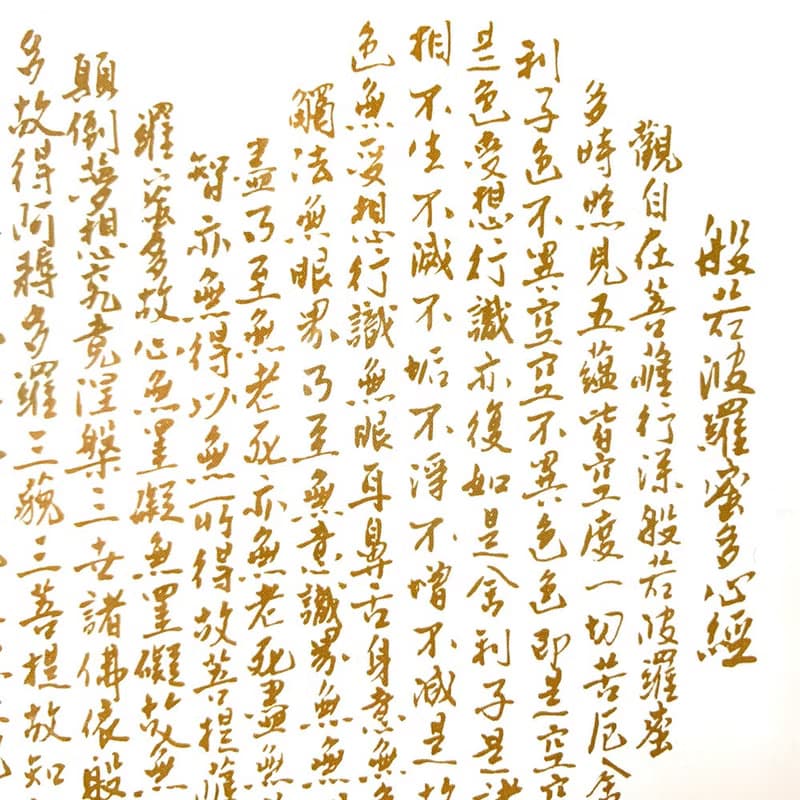 般若波羅蜜多心經
觀自在菩薩行深般若波羅蜜
多時照見五蘊皆空度一切苦厄舍
利子色不異空空不異色色即是空空
是色受想行識亦復如是舍利子是諸
相不生不滅不垢不淨不增不減是故
色無受想行識無眼耳鼻舌身意無
觸法無眼界乃至無意識界無無
盡乃至無老死亦無老死盡無
智亦無得以無所得故菩提薩
羅蜜多故心無罣礙無罣礙故無
顛倒夢想究竟涅槃三世諸佛依般
多故得阿耨多羅三藐三菩提故知